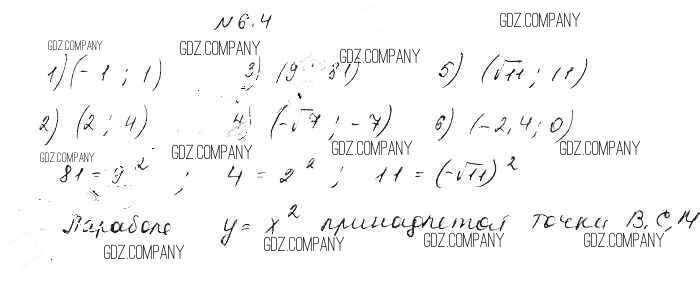 № 6.4
GDZ.COMPANY
GDZ.COMPANY GDZ.COMPANY GDZ.COMPANY
1) (-1 ; 1) 3) (9 ; 81) 5) (√11 ; 11)
2) (2 ; 4) 4) (-√7 ; -7) 6) (-2,4 ; 0)
GDZ.COMPANY GDZ.COMPANY GDZ.COMPANY GDZ.COMPANY
81 = 9² ; 4 = 2² ; 11 = (-√11)²
Параболе y = x² принадлежат точки В, С, М
GDZ.COMPANY GDZ.COMPANY GDZ.COMPANY GDZ.COMPANY